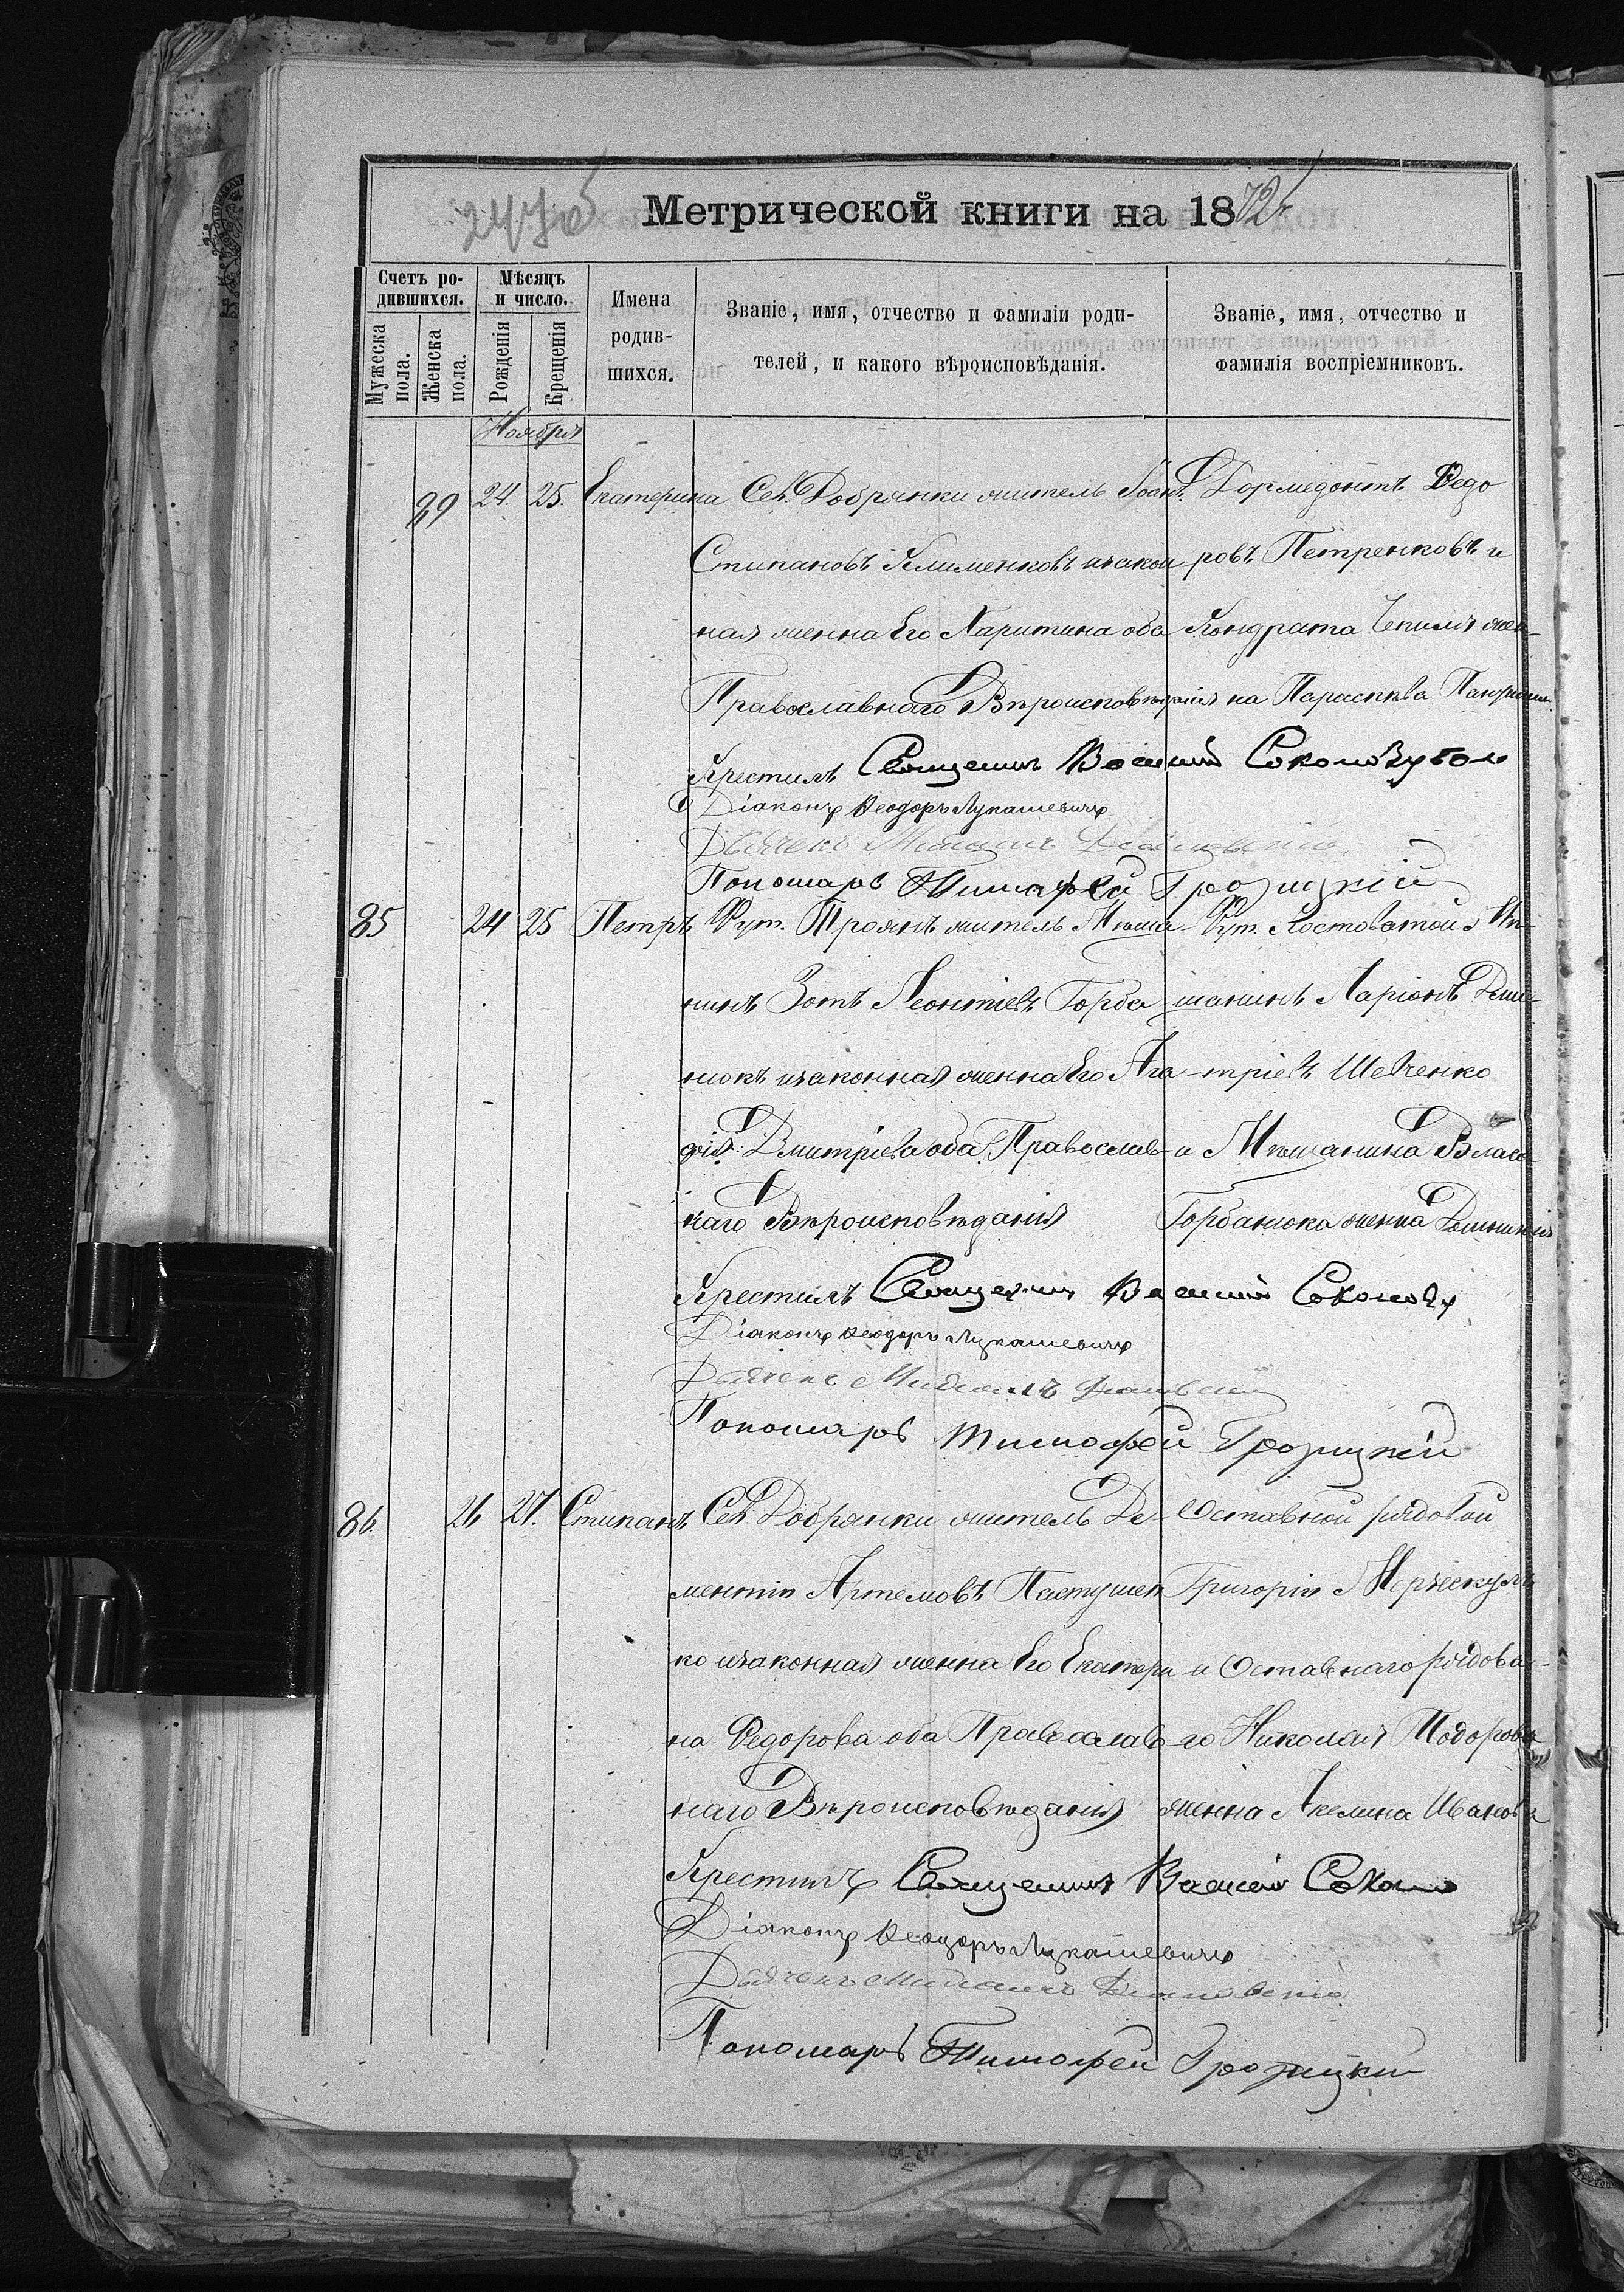 Метрической книги на 1872
Счетъ ро-
дившихся.
Мѣсяцъ
и число.
Мужеска
пола.
Женска
пола.
Рожденія
Крещенія
Имена
родив-
шихся.
Званіе, имя, отчество и фамиліи роди-
телей, и какого вѣроисповѣданія.
Званіе, имя, отчество и
фамилія воспріемниковъ.
Ноября
89 24. 25. Екатерина Сел. Добрянки житель Іоан.
Стипановъ Клименковъ изакон
ная женна Его Харитина оба
Православнаго Вѣроисповѣданія
Дормедонтъ Ѳедо
ровъ Петренковъ и
Кондрата Чепиля жен-
на Параскева
Крестилъ Священникъ Василій
Діаконъ Ѳеодоръ Лукашевичъ
Дьячекъ Михаилъ
Пономарь Тимофей Грозицкій
85 24 25 Петръ Хут. Троянъ житель Мѣща-
нинъ Зотъ Леонтіевъ Горба
нюкъ изаконная женна Его Ага
фія Дмитріева оба Православ-
наго Вѣроисповѣданія
Хут. Костоватой Мѣ-
щанинъ Ларіонъ Дми-
тріевъ Шевченко
и Мѣщанина Власа
Горбанюка женна
Крестилъ Священникъ Василій
Діаконъ Ѳеодоръ Лукашевичъ
Дьячекъ Михаилъ
Пономарь Тимофей Грозицкій
86 26 27. Стипанъ Сел. Добрянки житель Де-
ментій Артемовъ Пастушен
ко изаконная женна Его Екатери
на Ѳедорова оба Православ-
наго Вѣроисповѣданія
Оставной рядовой
Григорій
и Оставнаго рядова-
го Николая Тодорова
женна Акелина Иванова
Крестилъ Священникъ Василій
Діаконъ Ѳеодоръ Лукашевичъ
Дьячекъ Михаилъ
Пономарь Тимофей Грозицкій